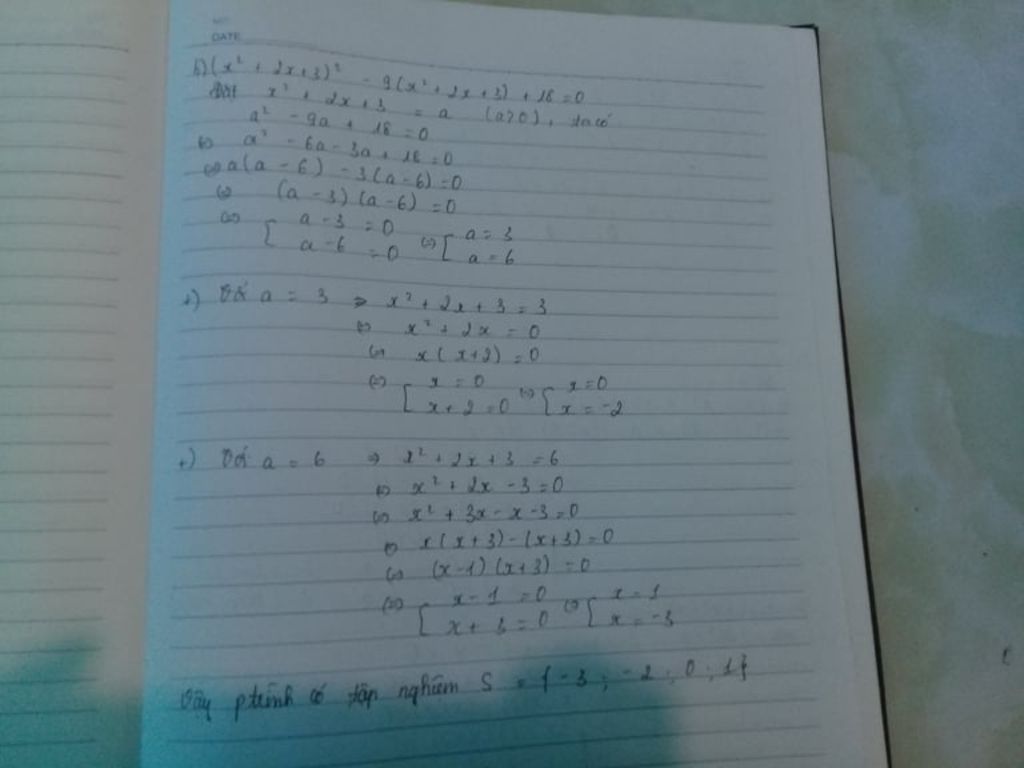 DATE
b) (x² + 2x + 3)² - 9(x² + 2x + 3) + 18 = 0
Đặt x² + 2x + 3 = a (a>0), ta có
a² - 9a + 18 = 0
(=) a² - 6a - 3a + 18 = 0
(=) a(a - 6) - 3(a - 6) = 0
(=) (a - 3)(a - 6) = 0
(=) [ a - 3 = 0 (=) [ a = 3
a - 6 = 0 a = 6
+) Với a = 3 => x² + 2x + 3 = 3
(=) x² + 2x = 0
(=) x(x+2) = 0
(=) [ x = 0 (=) [ x = 0
x + 2 = 0 x = -2
+) Với a = 6 => x² + 2x + 3 = 6
(=) x² + 2x - 3 = 0
(=) x² + 3x - x - 3 = 0
(=) x(x+3) - (x+3) = 0
(=) (x-1)(x+3) = 0
(=) [ x - 1 = 0 (=) [ x = 1
x + 3 = 0 x = -3
Vậy ptrình có tập nghiệm S = {-3 ; -2 ; 0 ; 1}